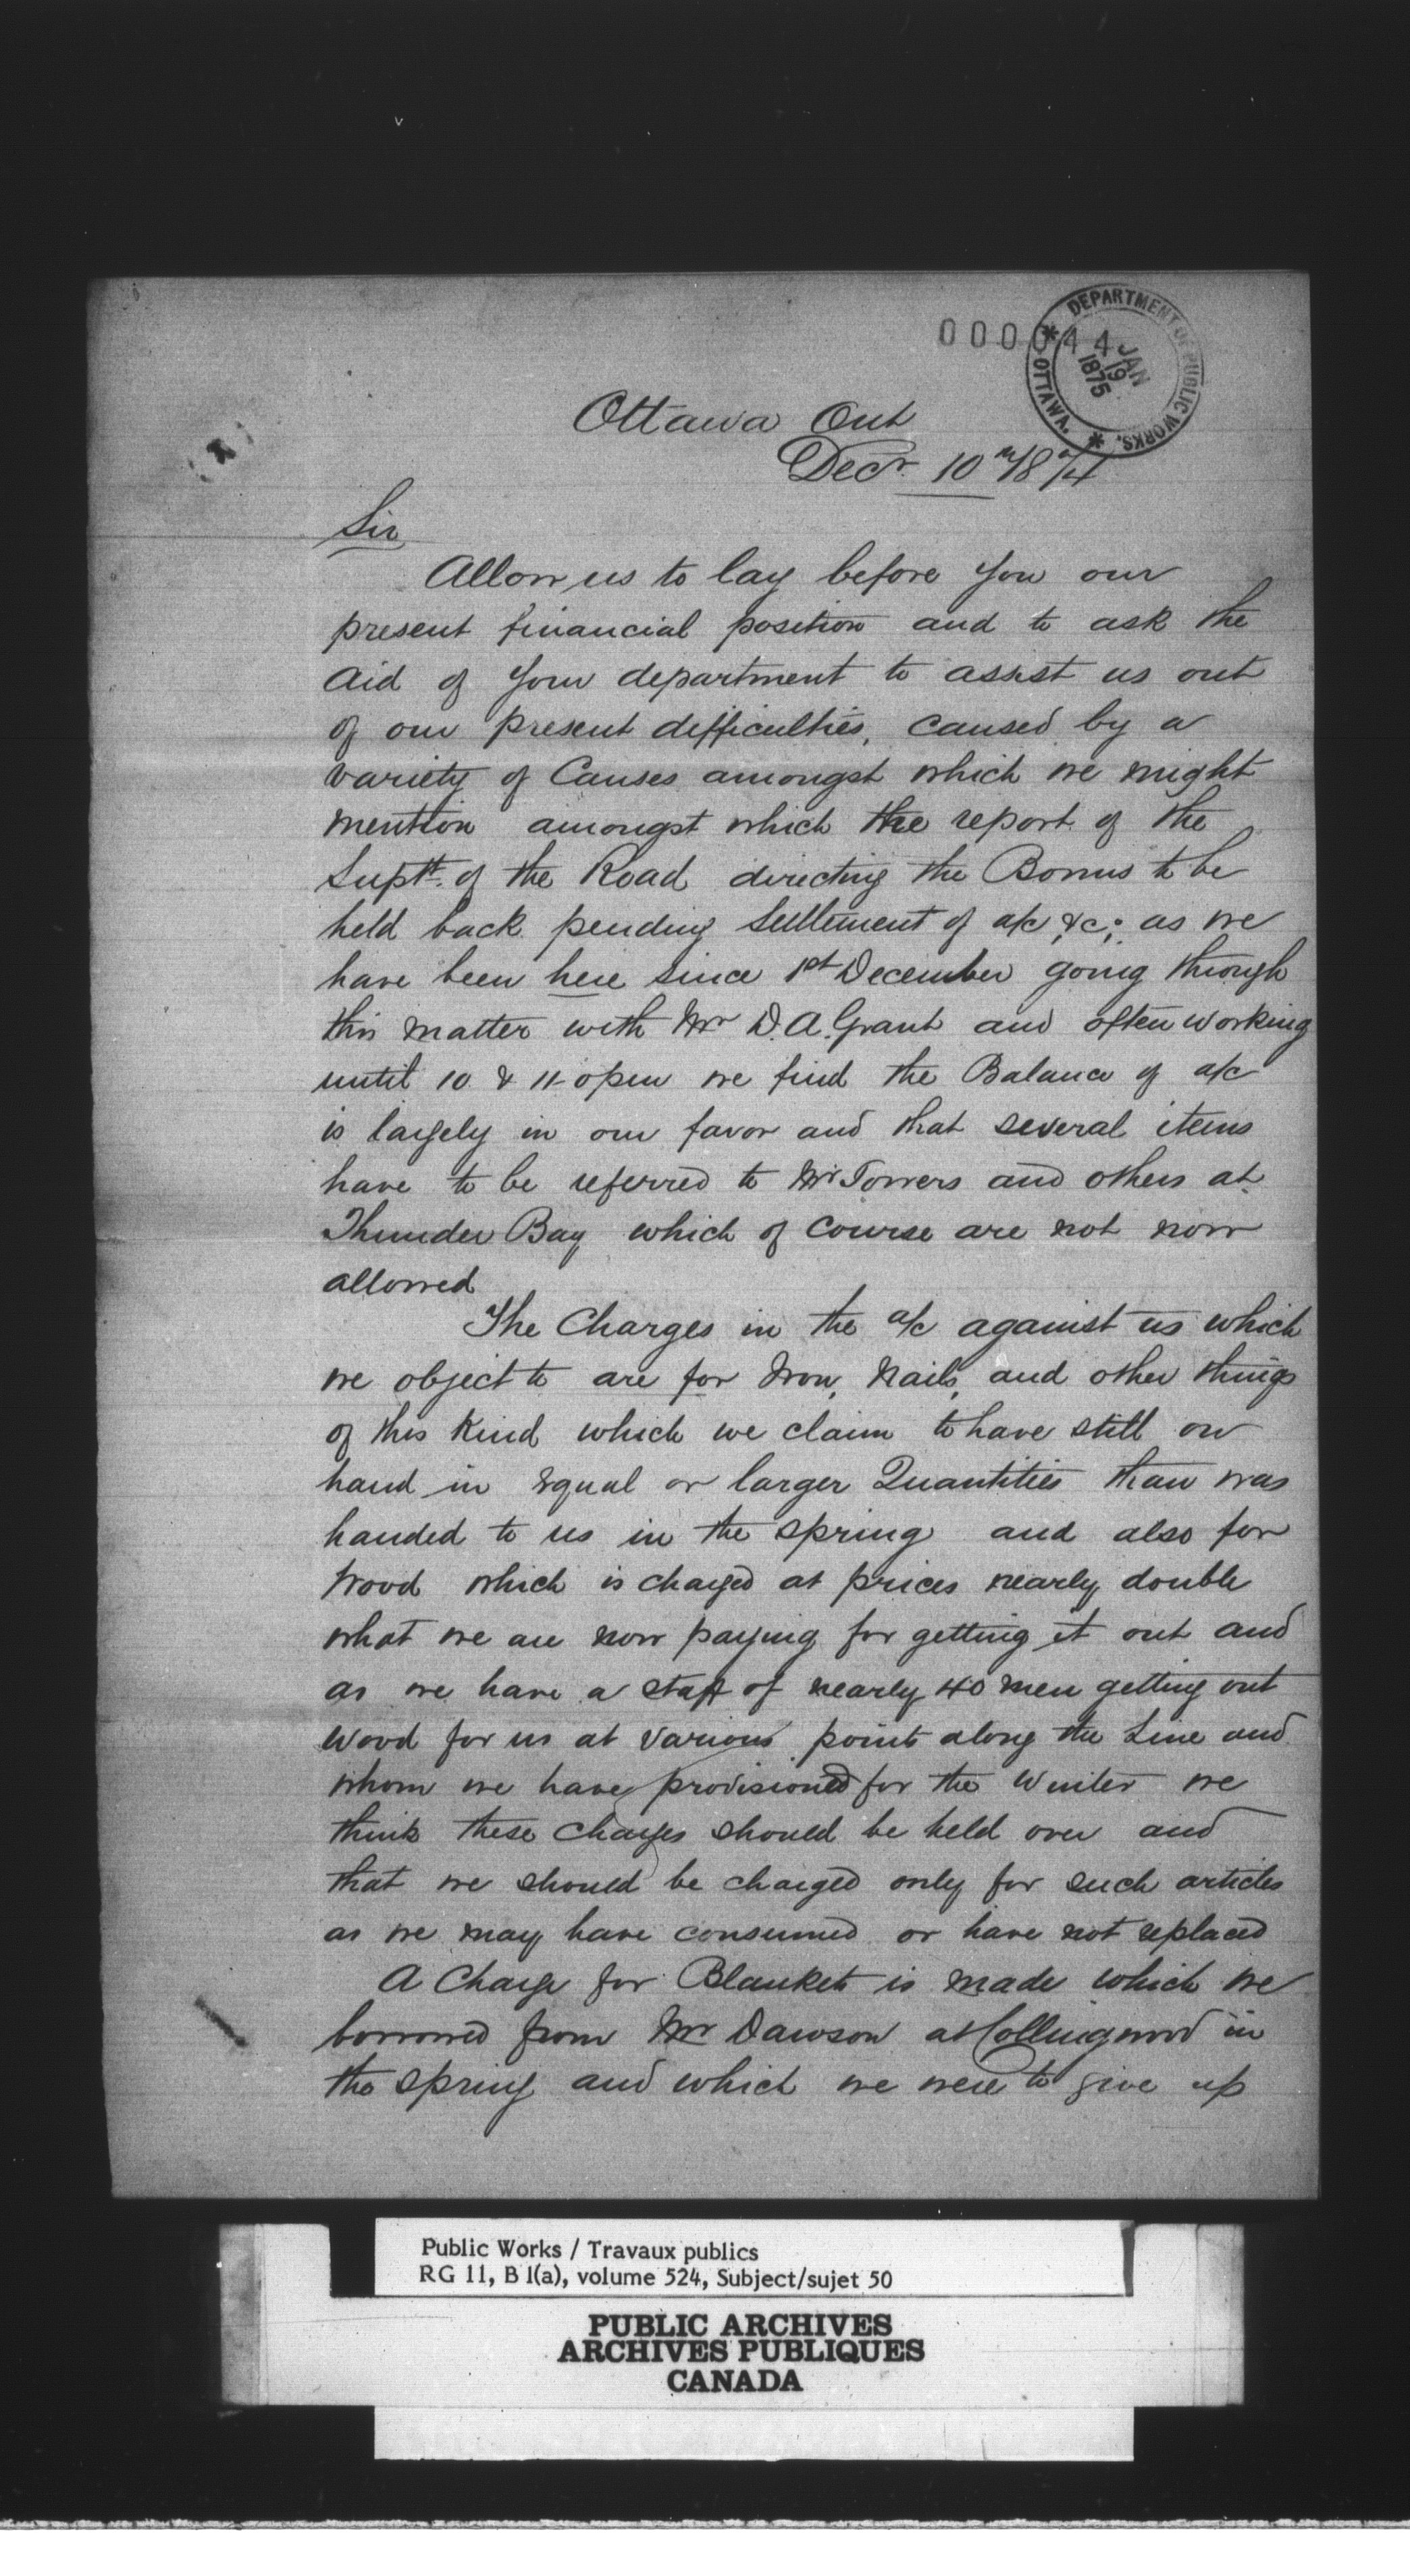 000044
DEPARTMENT OF PUBLIC WORKS,
* OTTAWA. *
JAN
19
1875
Ottawa Ont
Decr. 10th 1874
Sir
Allow us to lay before you our
present financial position and to ask the
aid of your department to assist us out
of our present difficulties, caused by a
variety of Causes amongst which we might
mention amongst which the report of the
Suptt. of the Road directing the Bonus to be
held back pending Settlement of a/c &c; as we
have been here since 1st December going through
this matter with Mr D. A. Grant and often working
until 10 & 11 opm we find the Balance of a/c
is largely in our favor and that several items
have to be referred to Mr Towers and others at
Thunder Bay which of course are not now
allowed
The Charges in the a/c against us which
we object to are for Iron, Nails, and other things
of this Kind which we claim to have still on
hand in equal or larger Quantities than was
handed to us in the spring and also for
Wood which is charged at prices nearly double
what we are now paying for getting it out and
as we have a staff of nearly 40 men getting out
Wood for us at various points along the Line and
whom we have provisioned for the Winter we
think these charges should be held over and
that we should be charged only for such articles
as we may have consumed or have not replaced
A Charge for Blankets is made which we
borrowed from Mr Dawson at Collingwood in
the spring and which we were to give up
Public Works / Travaux publics
RG 11, B 1(a), volume 524, Subject/sujet 50
PUBLIC ARCHIVES
ARCHIVES PUBLIQUES
CANADA